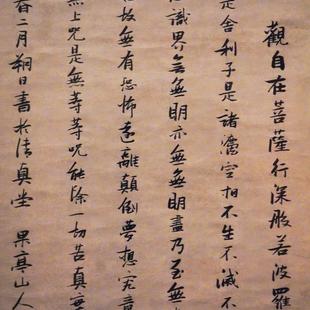 觀自在菩薩行深般若波羅
是舍利子是諸灋空相不生不滅不
識界无無明亦無無明盡乃至無
故無有恐怖遠離顛倒夢想究竟
無上呪是無等等呪能除一切苦真實
春二月朔日書於真 果亭山人